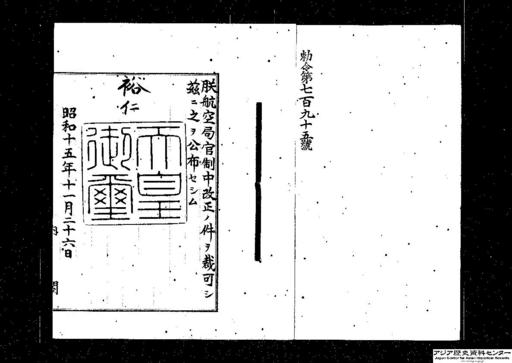 勅令第七百九十五號
朕航空局官制中改正ノ件ヲ裁可シ
茲ニ之ヲ公布セシム
裕仁
天皇
御璽
昭和十五年十一月二十六日
内閣
アジア歴史資料センター
Japan Center for Asian Historical Records